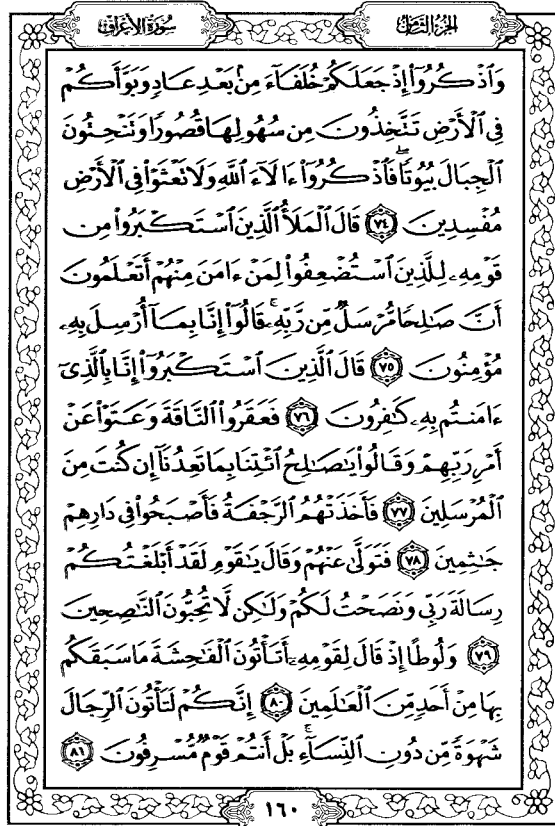 سُورَةُ الأَعْرَافِ
الجُزْءُ الثَّامِنُ
وَٱذْكُرُوٓا۟ إِذْ جَعَلَكُمْ خُلَفَآءَ مِنۢ بَعْدِ عَادٍ وَبَوَّأَكُمْ
فِى ٱلْأَرْضِ تَتَّخِذُونَ مِن سُهُولِهَا قُصُورًا وَتَنْحِتُونَ
ٱلْجِبَالَ بُيُوتًا ۖ فَٱذْكُرُوٓا۟ ءَالَآءَ ٱللَّهِ وَلَا تَعْثَوْا۟ فِى ٱلْأَرْضِ
مُفْسِدِينَ ٧٤ قَالَ ٱلْمَلَأُ ٱلَّذِينَ ٱسْتَكْبَرُوا۟ مِن
قَوْمِهِۦ لِلَّذِينَ ٱسْتُضْعِفُوا۟ لِمَنْ ءَامَنَ مِنْهُمْ أَتَعْلَمُونَ
أَنَّ صَٰلِحًا مُّرْسَلٌ مِّن رَّبِّهِۦ ۚ قَالُوٓا۟ إِنَّا بِمَآ أُرْسِلَ بِهِۦ
مُؤْمِنُونَ ٧٥ قَالَ ٱلَّذِينَ ٱسْتَكْبَرُوٓا۟ إِنَّا بِٱلَّذِىٓ
ءَامَنتُم بِهِۦ كَٰفِرُونَ ٧٦ فَعَقَرُوا۟ ٱلنَّاقَةَ وَعَتَوْا۟ عَنْ
أَمْرِ رَبِّهِمْ وَقَالُوا۟ يَٰصَٰلِحُ ٱئْتِنَا بِمَا تَعِدُنَآ إِن كُنتَ مِنَ
ٱلْمُرْسَلِينَ ٧٧ فَأَخَذَتْهُمُ ٱلرَّجْفَةُ فَأَصْبَحُوا۟ فِى دَارِهِمْ
جَٰثِمِينَ ٧٨ فَتَوَلَّىٰ عَنْهُمْ وَقَالَ يَٰقَوْمِ لَقَدْ أَبْلَغْتُكُمْ
رِسَالَةَ رَبِّى وَنَصَحْتُ لَكُمْ وَلَٰكِن لَّا تُحِبُّونَ ٱلنَّٰصِحِينَ
٧٩ وَلُوطًا إِذْ قَالَ لِقَوْمِهِۦٓ أَتَأْتُونَ ٱلْفَٰحِشَةَ مَا سَبَقَكُم
بِهَا مِنْ أَحَدٍ مِّنَ ٱلْعَٰلَمِينَ ٨٠ إِنَّكُمْ لَتَأْتُونَ ٱلرِّجَالَ
شَهْوَةً مِّن دُونِ ٱلنِّسَآءِ ۚ بَلْ أَنتُمْ قَوْمٌ مُّسْرِفُونَ ٨١
١٦٠